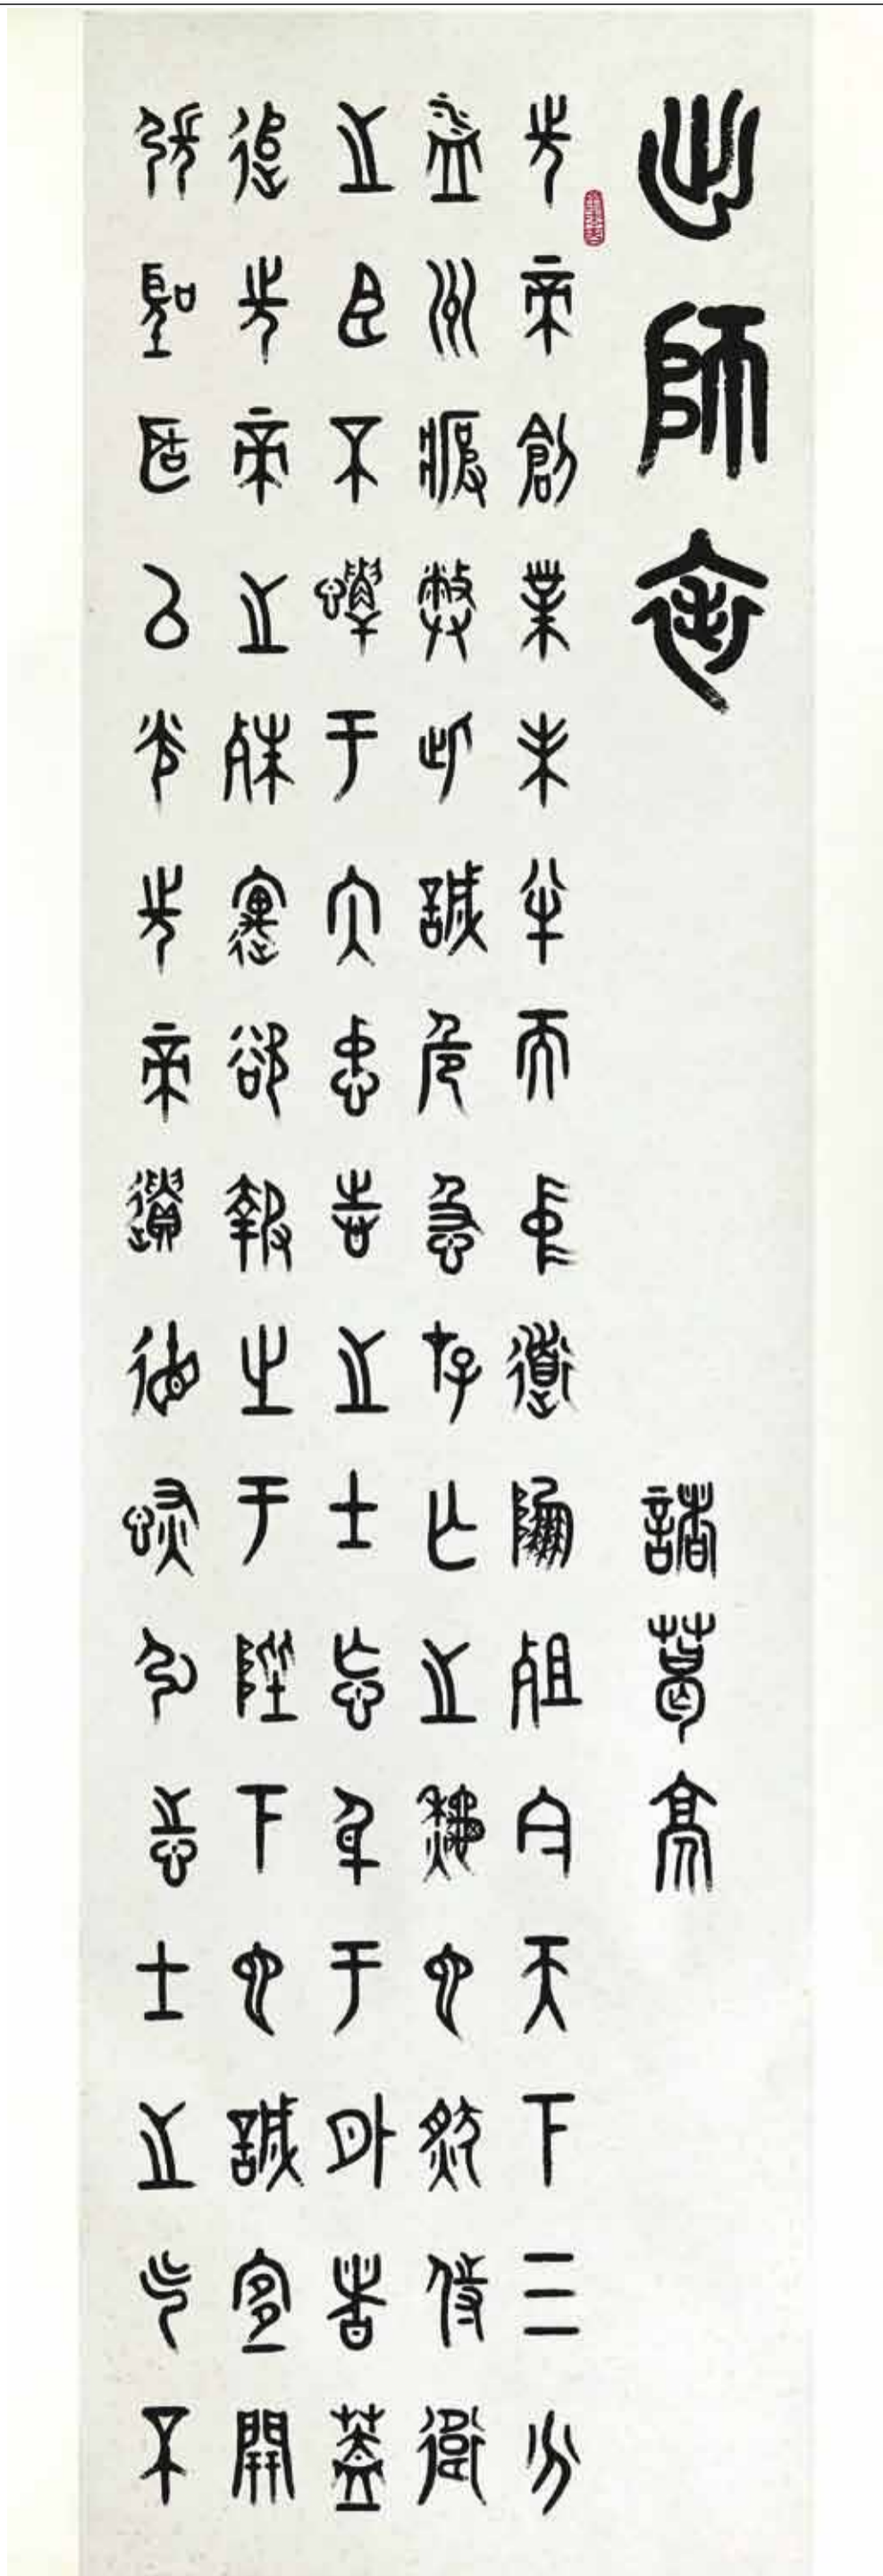 出師表 諸葛亮
先帝創業未半而中道崩殂今天下三分
益州疲弊此誠危急存亡之秋也然侍衛
之臣不懈于內忠志之士忘身于外者蓋
追先帝之殊遇欲報之于陛下也誠宜開
張聖聽以光先帝遺德恢弘志士之氣不